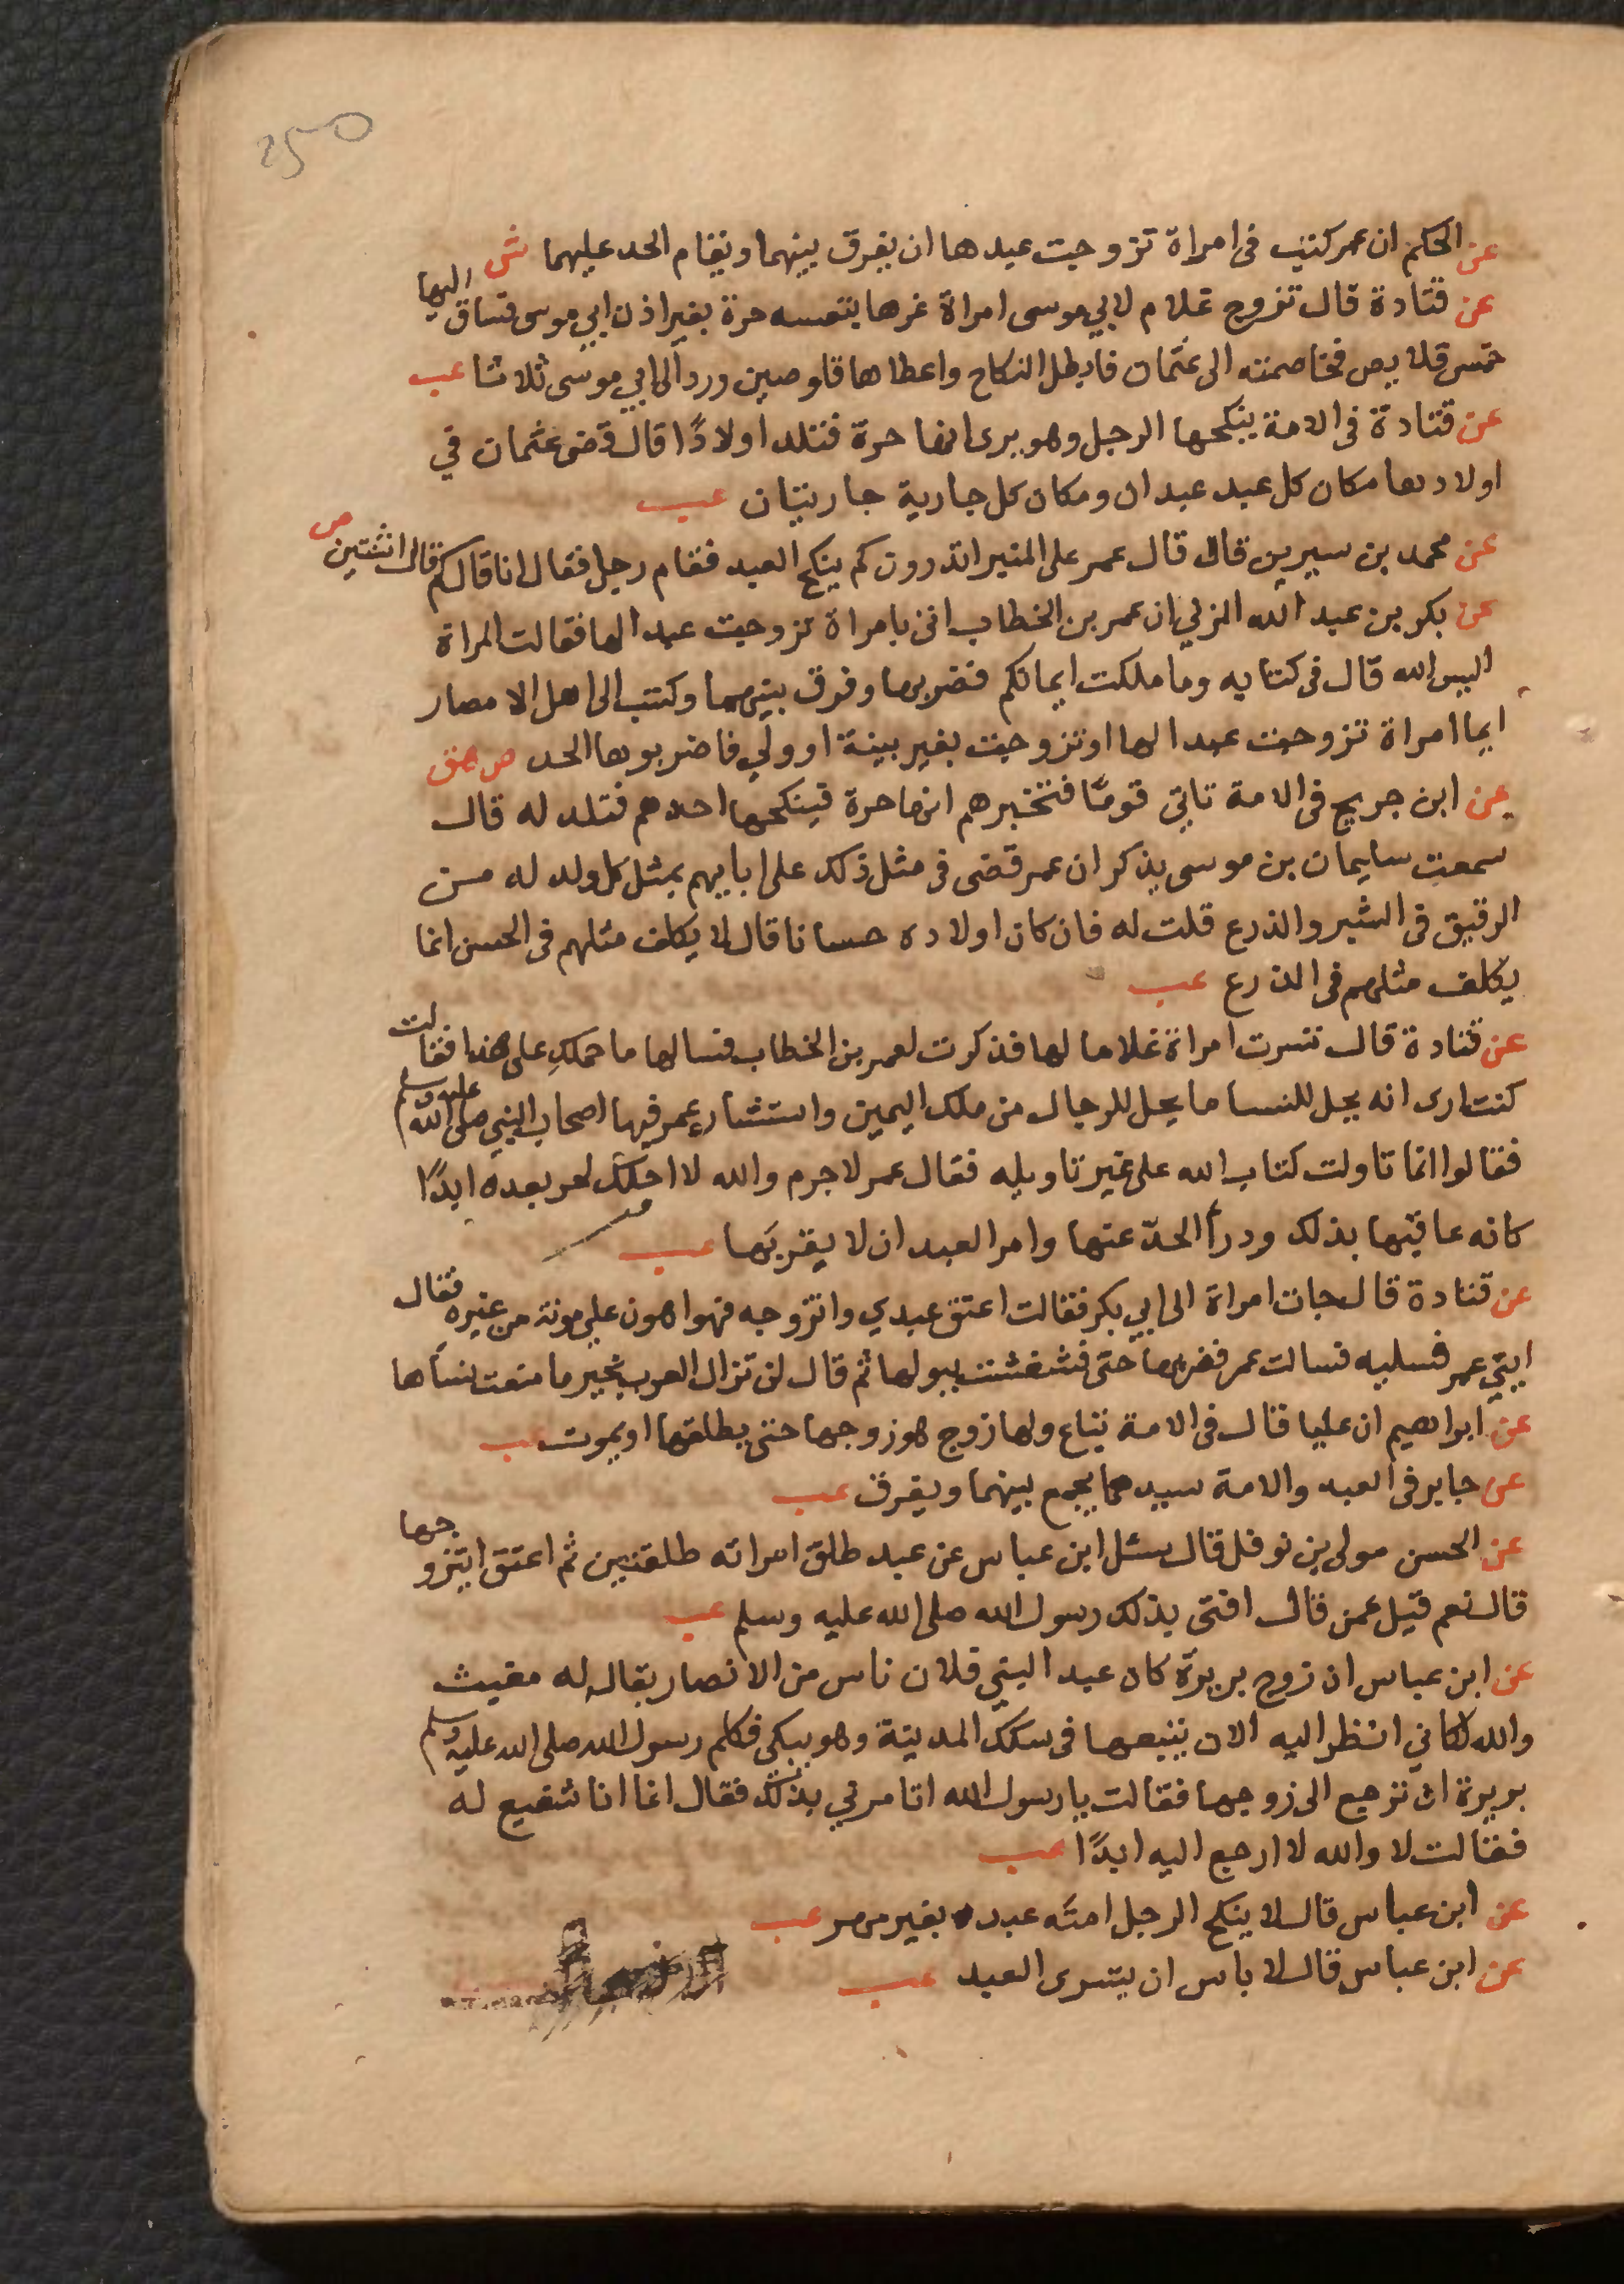 250
عن الحكم ان عمر كتب فى امراة تزوجت عبدها ان يفرق بينهما ويقام الحد عليهما ش
عن قتادة قال تزوج غلام لابي موسى امراة غرها بنفسه حرة بغير اذن ابي موسى فساق اليها
خمس قلايص فخاصمته الى عثمان فابطل النكاح واعطاها قلوصين ورد الى ابي موسى ثلاثا عب
عن قتادة فى الامة ينكحها الرجل وهو يرى انها حرة فتلد اولادًا قال قضى عثمان في
اولادها مكان كل عبد عبدان ومكان كل جارية جاريتان عب
عن محمد بن سيرين قال قال عمر على المنبر اتدرون كم ينكح العبد فقام رجل فقال انا قال كم قال اثنتين ص
عن بكر بن عبد الله المزني ان عمر بن الخطاب اتى بامراة تزوجت عبدا لها فقالت المراة
اليس الله قال فى كتابه وما ملكت ايمانكم فضربها وفرق بينهما وكتب الى اهل الامصار
ايما امراة تزوجت عبدا لها او تزوجت بغير بينة او ولي فاضربوها الحد ص هق
عن ابن جريج فى الامة تاتي قومًا فتخبرهم انها حرة فينكحها احدهم فتلد له قال
سمعت سليمان بن موسى يذكر ان عمر قضى فى مثل ذلك على ابايهم بمثل كل ولد له من
الرقيق فى الشبر والذرع قلت له فان كان اولاده حسانا قال لا يكلف مثلهم فى الحسن انما
يكلف مثلهم فى الذرع عب
عن قتادة قال تسرت امراة غلاما لها فذكرت لعمر بن الخطاب فسالها ما حملكِ على هذا فقالت
كنت ارى انه يحل للنسا ما يحل للرجال من ملك اليمين واستشار عمر فيها اصحاب النبي صلى الله عليه وسلم
فقالوا انما تاولت كتاب الله على غير تاويله فقال عمر لا جرم والله لا احلك لحر بعده ابدًا
كانه عاقبها بذلك ودرأ الحدّ عنها وامر العبد ان لا يقربها عب
عن قتادة قال جات امراة الى ابي بكر فقالت اعتق عبدي واتزوجه فهو اهون علي مونة من غيره فقال
ايتي عمر فسليه فسالت عمر فضربها حتى فشفشت ببولها ثم قال لن تزال العرب بخير ما منعت نساها
عن ابراهيم ان عليا قال فى الامة تباع ولها زوج هو زوجها حتى يطلقها او يموت عب
عن جابر فى العبد والامة سيدهما يجمع بينهما ويفرق عب
عن الحسن مولى بن نوفل قال سئل ابن عباس عن عبد طلق امراته طلقتين ثم اعتق ايتزوجها
قال نعم قيل عمن قال افتى بذلك رسول الله صلى الله عليه وسلم عب
عن ابن عباس ان زوج بريرة كان عبدا لبني فلان ناس من الانصار يقال له مغيث
والله لكاني انظر اليه الان يتبعها فى سكك المدينة وهو يبكى فكلم رسول الله صلى الله عليه وسلم
بريرة ان ترجع الى زوجها فقالت يا رسول الله اتامرني بذلك فقال انما انا شفيع له
فقالت لا والله لا ارجع اليه ابدًا عب
عن ابن عباس قال لا ينكح الرجل امته عبده بغير مهر عب
عن ابن عباس قال لا باس ان يتسرى العبد عب